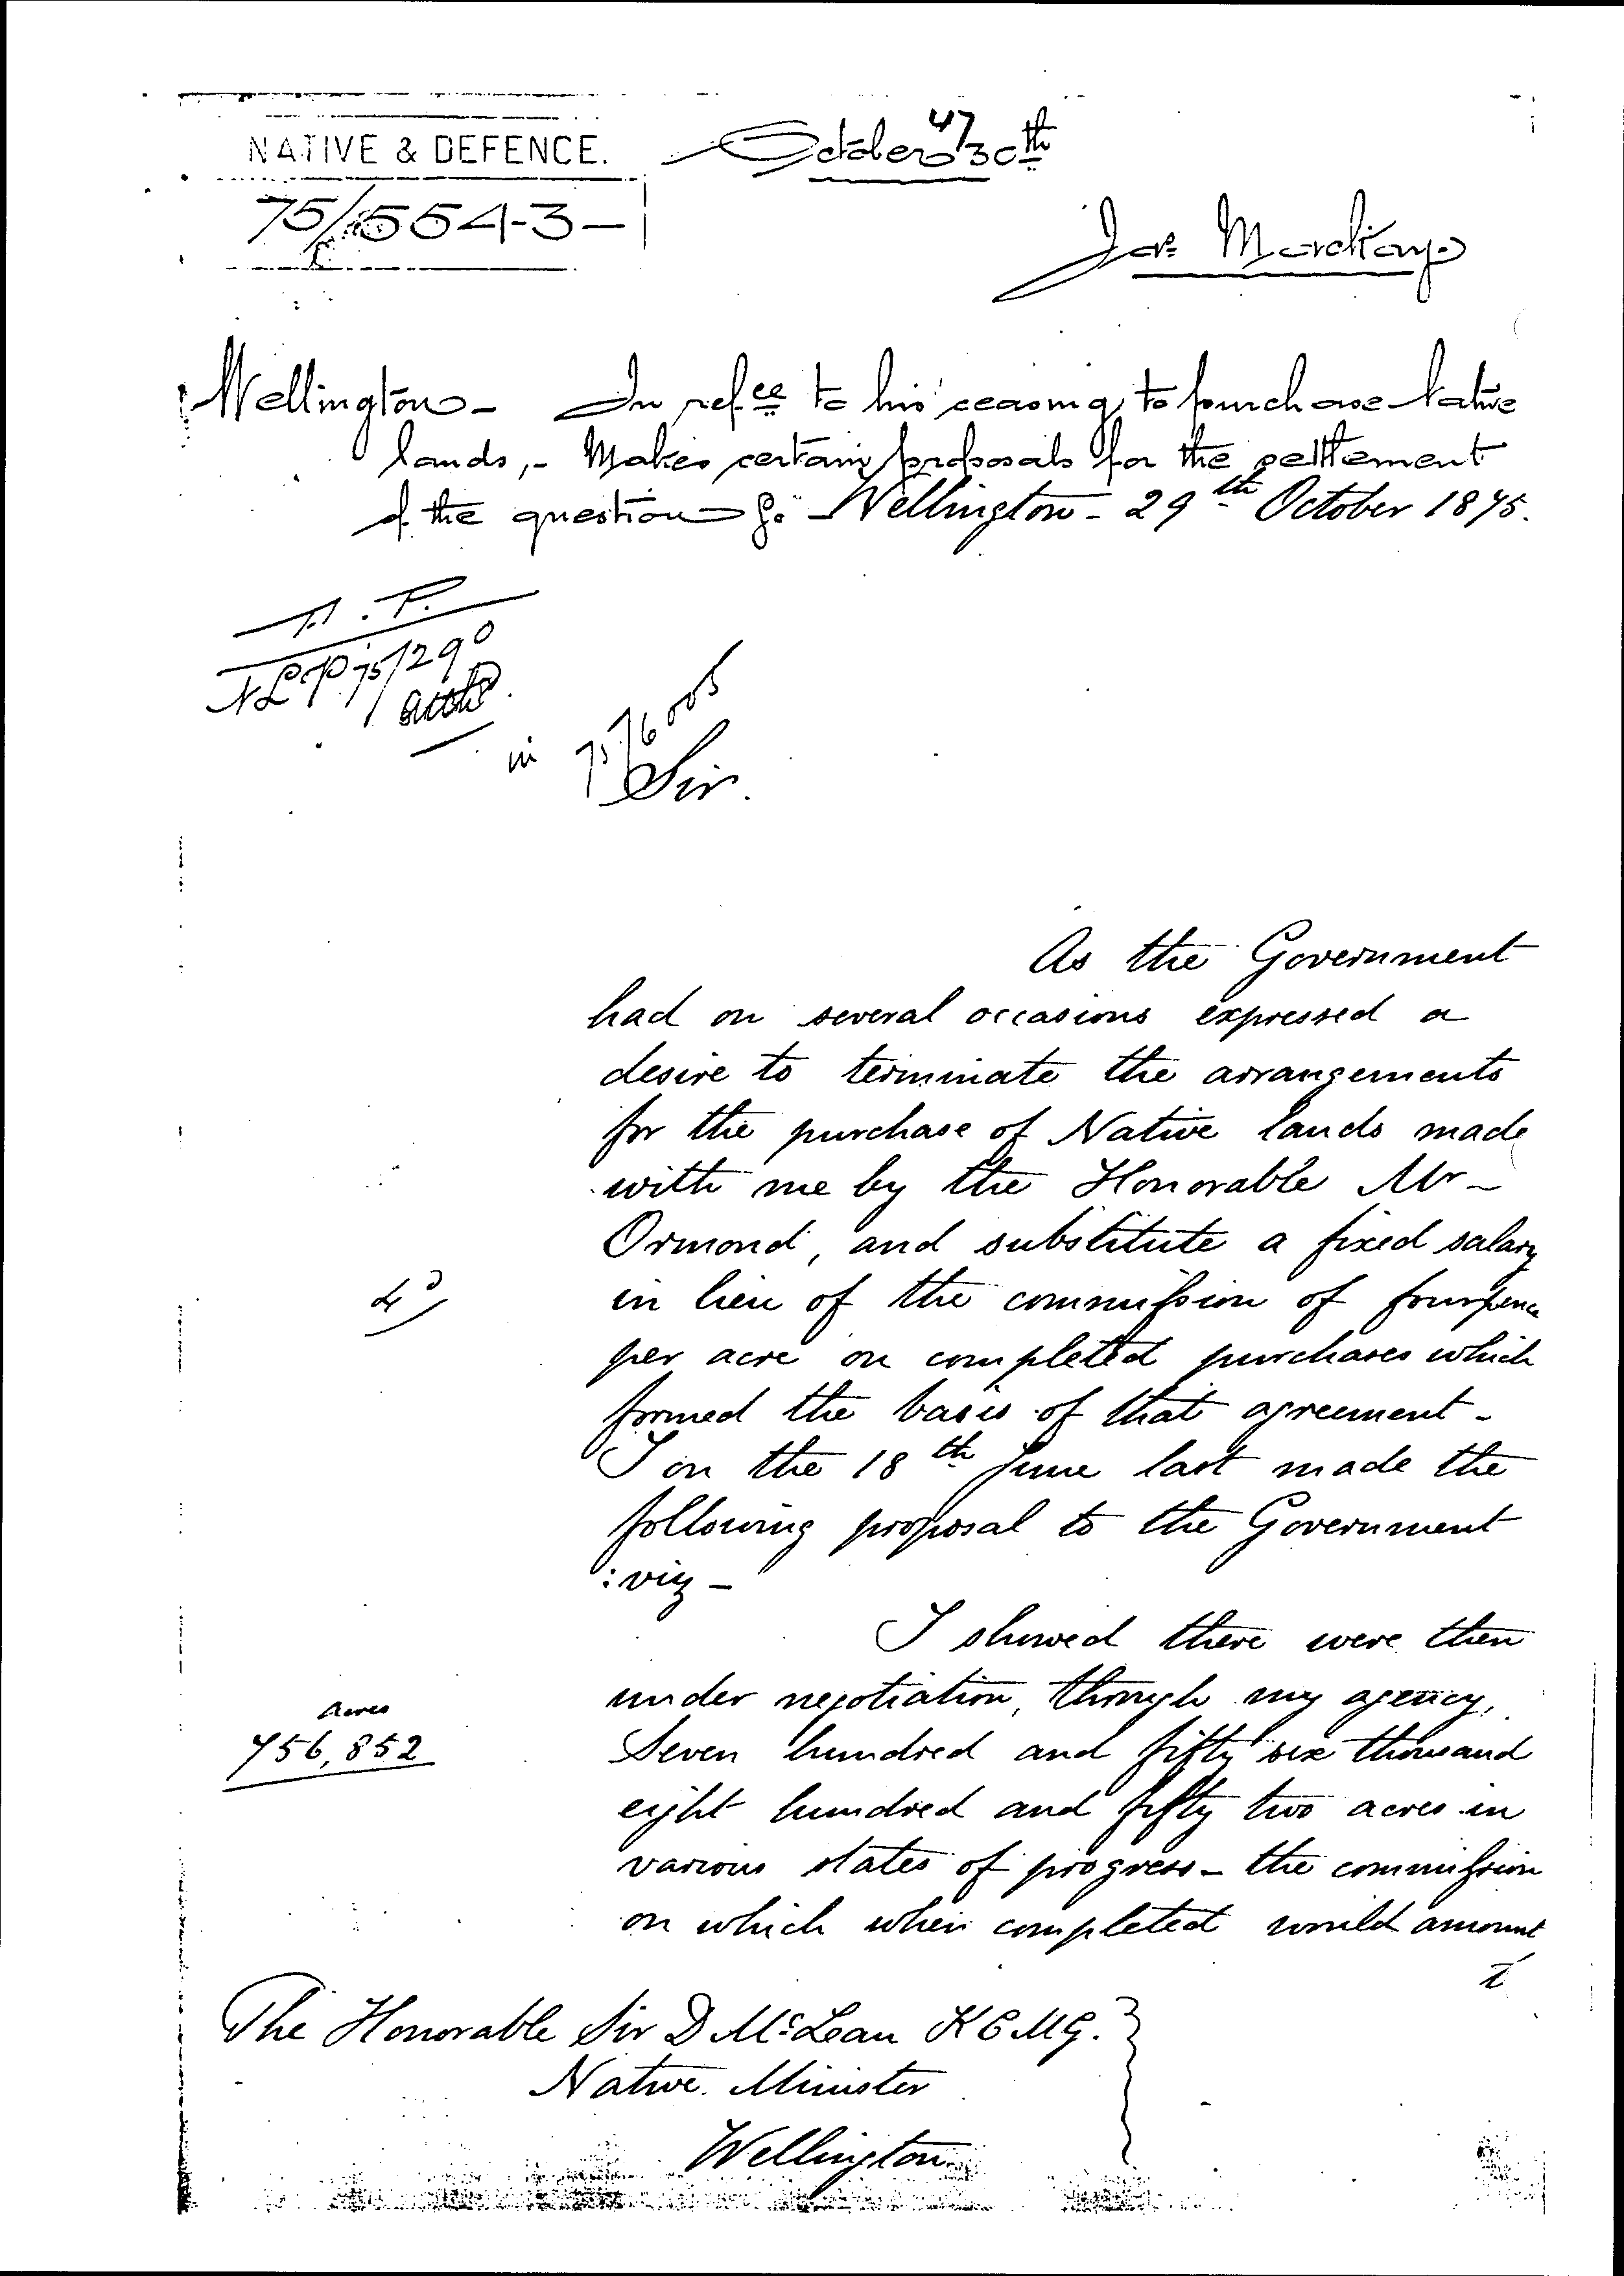 NATIVE & DEFENCE.
October 30th
47
75/5543-
Jas. Mackay
Wellington - In refce to his ceasing to purchase Native
lands, - Makes certain proposals for the settlement
of the question &c
Wellington - 29th October 1875.
N L P 75/290
in
Sir.
As the Government
had on several occasions expressed a
desire to terminate the arrangements
for the purchase of Native lands made
with me by the Honorable Mr -
Ormond, and substitute a fixed salary
4d
in lieu of the commission of fourpence
per acre on completed purchases which
formed the basis of that agreement -
I on the 18th June last made the
following proposal to the Government
: viz -
I showed there were then
under negotiation, through my agency,
Acres
756,852
Seven hundred and fifty six thousand
eight hundred and fifty two acres in
various states of progress - the commission
on which when completed would amount
to
The Honorable Sir D McLean K C M G.
Native Minister
Wellington